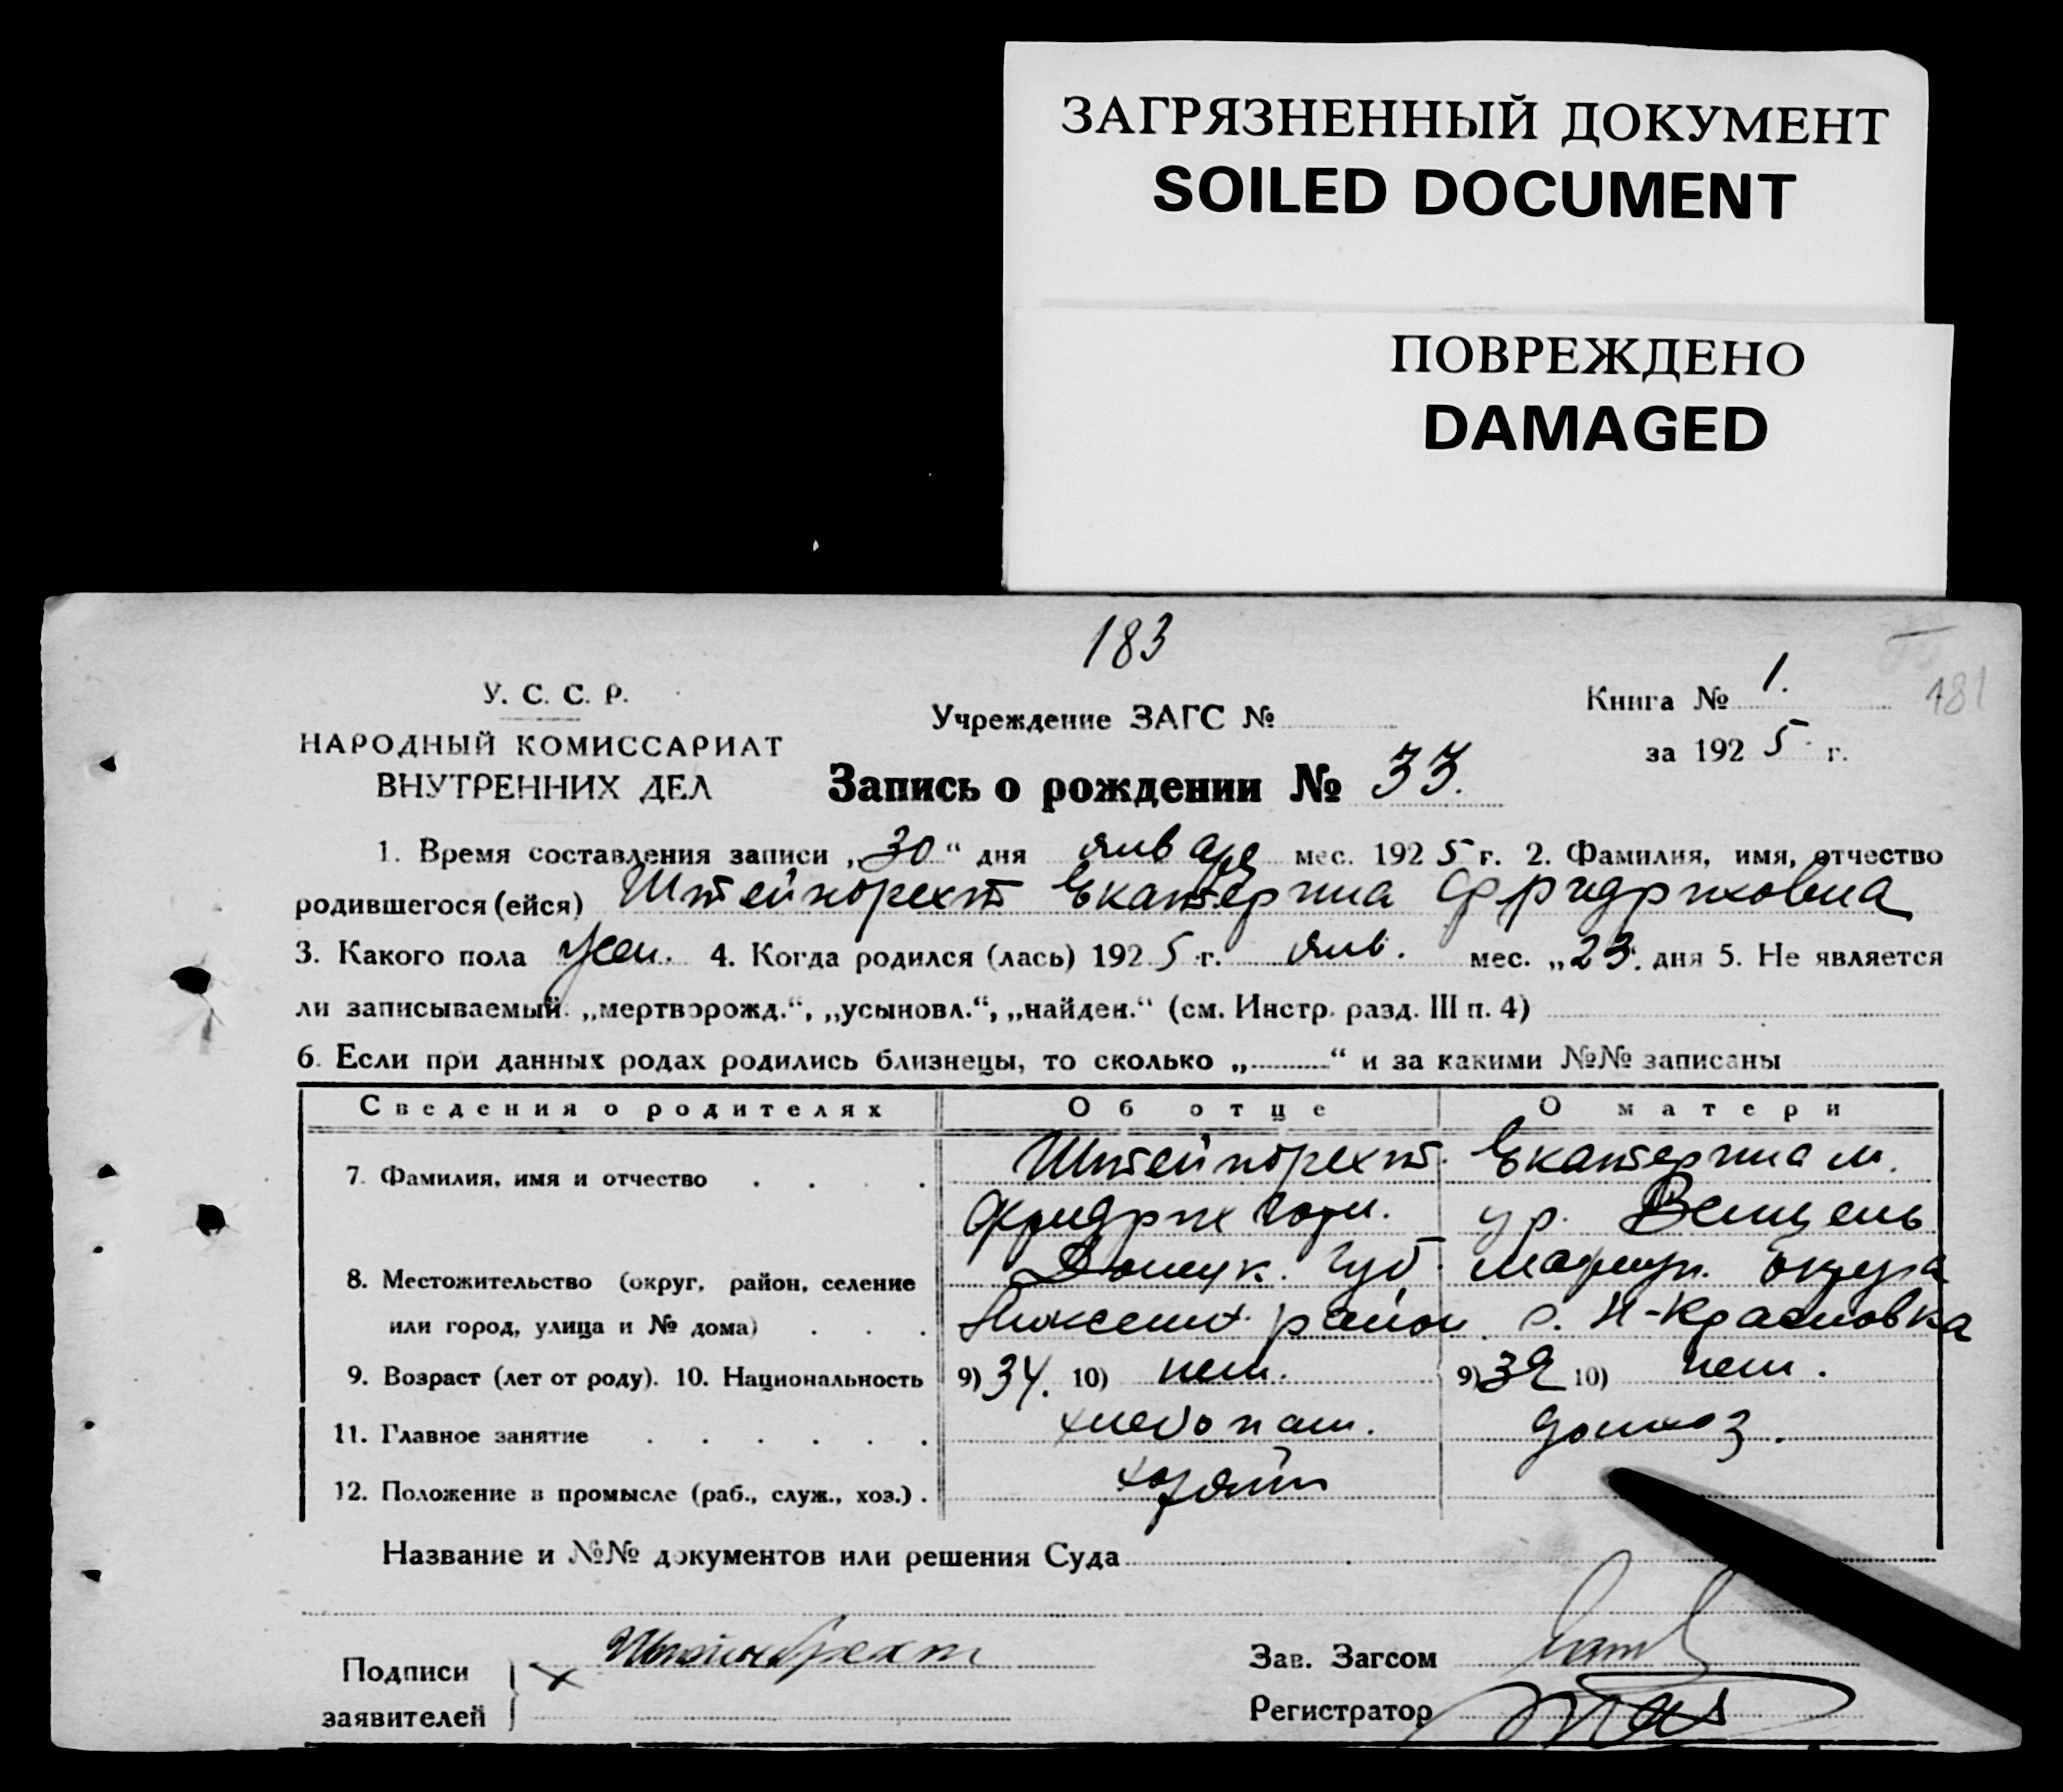 ЗАГРЯЗНЕННЫЙ ДОКУМЕНТ
SOILED DOCUMENT
ПОВРЕЖДЕНО
DAMAGED
183
181
У. С. С. Р.
НАРОДНЫЙ КОМИССАРИАТ
ВНУТРЕННИХ ДЕЛ
Учреждение ЗАГС №
Книга № 1.
за 1925 г.
Запись о рождении № 33.
1. Время составления записи „30“ дня января мес. 1925 г. 2. Фамилия, имя, отчество
родившегося (ейся) Штейнбрехт Екатерина Фридриховна
3. Какого пола жен. 4. Когда родился (лась) 1925 г. янв. мес. „23“ дня 5. Не является
ли записываемый „мертворожд.“, „усыновл.“, „найден.“ (см. Инстр. разд. III п. 4)
6. Если при данных родах родились близнецы, то сколько „ “ и за какими №№ записаны
Сведения о родителях Об отце О матери
7. Фамилия, имя и отчество Штейнбрехт Екатерина м.
Фридрих ур. Венцель
8. Местожительство (округ, район, селение Донецк. губ. Мариуп. округа
или город, улица и № дома) район с. Н-Красновка
9. Возраст (лет от роду). 10. Национальность 9) 34. 10) нем. 9) 32 10) нем.
11. Главное занятие хлебопаш. домхоз.
12. Положение в промысле (раб., служ., хоз.) хозяин
Название и №№ документов или решения Суда
Подписи заявителей Штейнбрехт
Зав. Загсом
Регистратор